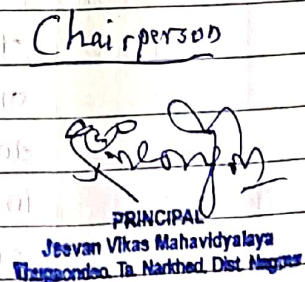 Chairperson
PRINCIPAL
Jeevan Vikas Mahavidyalaya
Thugaondeo. Ta. Narkhed, Dist. Nagpur